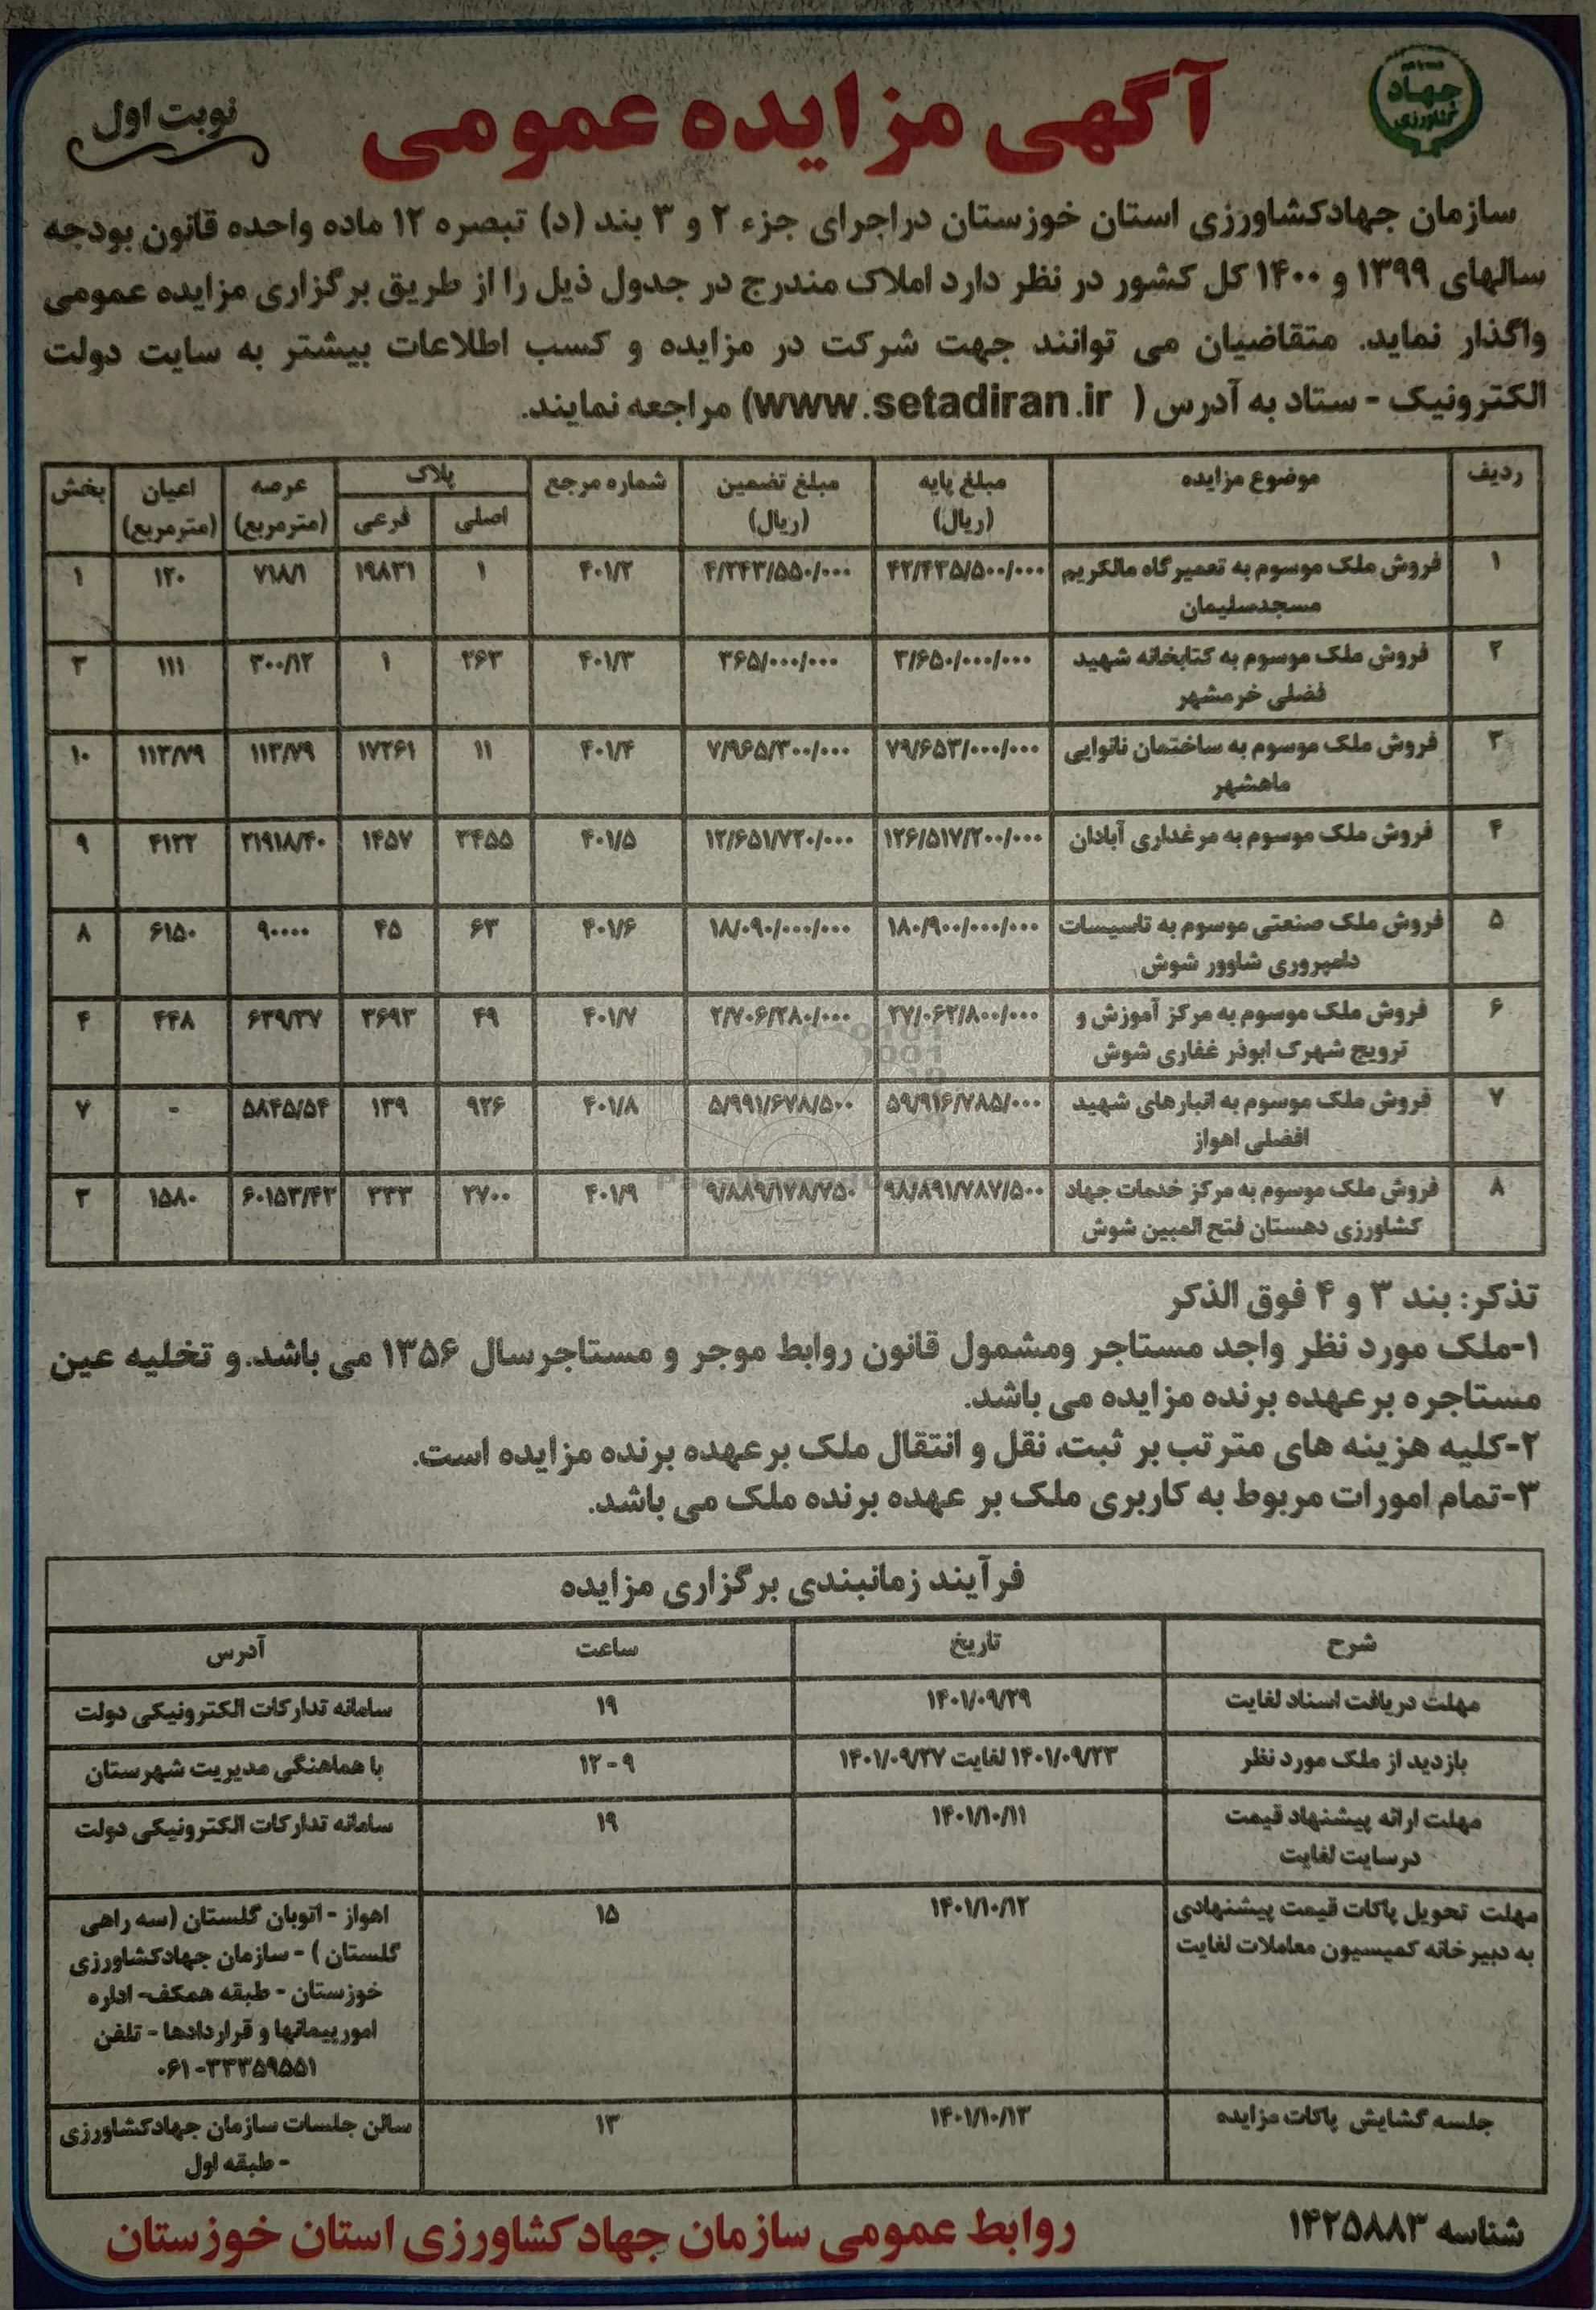 جهاد
کشاورزی
آگهی مزایده عمومی
نوبت اول
سازمان جهادکشاورزی استان خوزستان دراجرای جزء ۲ و ۳ بند (د) تبصره ۱۲ ماده واحده قانون بودجه
سالهای ۱۳۹۹ و ۱۴۰۰ کل کشور در نظر دارد املاک مندرج در جدول ذیل را از طریق برگزاری مزایده عمومی
واگذار نماید. متقاضیان می توانند جهت شرکت در مزایده و کسب اطلاعات بیشتر به سایت دولت
الکترونیک - ستاد به آدرس ( www.setadiran.ir) مراجعه نمایند.
ردیف موضوع مزایده مبلغ پایه (ریال) مبلغ تضمین (ریال) شماره مرجع پلاک اصلی فرعی عرصه (مترمربع) اعیان (مترمربع) بخش
۱ فروش ملک موسوم به تعمیرگاه مالکریم ۴۲/۴۳۵/۵۰۰/۰۰۰ ۴/۲۴۳/۵۵۰/۰۰۰ ۴۰۱/۲ ۱ ۱۹۸۳۱ ۷۱۸/۱ ۱۲۰ ۱
مسجدسلیمان
۲ فروش ملک موسوم به کتابخانه شهید ۳/۶۵۰/۰۰۰/۰۰۰ ۳۶۵/۰۰۰/۰۰۰ ۴۰۱/۳ ۲۶۳ ۱ ۳۰۰/۱۲ ۱۱۱ ۳
فضلی خرمشهر
۳ فروش ملک موسوم به ساختمان نانوایی ۷۹/۶۵۳/۰۰۰/۰۰۰ ۷/۹۶۵/۳۰۰/۰۰۰ ۴۰۱/۴ ۱۱ ۱۷۲۶۱ ۱۱۳/۷۹ ۱۱۳/۷۹ ۱۰
ماهشهر
۴ فروش ملک موسوم به مرغداری آبادان ۱۲۶/۵۱۷/۲۰۰/۰۰۰ ۱۲/۶۵۱/۷۲۰/۰۰۰ ۴۰۱/۵ ۳۴۵۵ ۱۴۵۷ ۲۱۹۱۸/۴۰ ۴۱۲۲ ۹
۵ فروش ملک صنعتی موسوم به تاسیسات ۱۸۰/۹۰۰/۰۰۰/۰۰۰ ۱۸/۰۹۰/۰۰۰/۰۰۰ ۴۰۱/۶ ۶۳ ۴۵ ۹۰۰۰۰ ۶۱۵۰ ۸
دامپروری شاوور شوش
۶ فروش ملک موسوم به مرکز آموزش و ۲۷/۰۶۲/۸۰۰/۰۰۰ ۲/۷۰۶/۲۸۰/۰۰۰ ۴۰۱/۷ ۴۹ ۳۶۹۳ ۶۳۹/۳۷ ۴۴۸ ۴
ترویج شهرک ابوذر غفاری شوش
۷ فروش ملک موسوم به انبارهای شهید ۵۹/۹۱۶/۷۸۵/۰۰۰ ۵/۹۹۱/۶۷۸/۵۰۰ ۴۰۱/۸ ۹۲۶ ۱۳۹ ۵۸۴۵/۵۴ - ۷
افضلی اهواز
۸ فروش ملک موسوم به مرکز خدمات جهاد ۹۸/۸۹۱/۷۸۷/۵۰۰ ۹/۸۸۹/۱۷۸/۷۵۰ ۴۰۱/۹ ۲۷۰۰ ۲۳۳ ۶۰۱۵۳/۴۳ ۱۵۸۰ ۳
کشاورزی دهستان فتح المبین شوش
تذکر: بند ۳ و ۴ فوق الذکر
۱-ملک مورد نظر واجد مستاجر ومشمول قانون روابط موجر و مستاجرسال ۱۳۵۶ می باشد.و تخلیه عین
مستاجره برعهده برنده مزایده می باشد.
۲-کلیه هزینه های مترتب بر ثبت، نقل و انتقال ملک برعهده برنده مزایده است.
۳-تمام امورات مربوط به کاربری ملک بر عهده برنده ملک می باشد.
فرآیند زمانبندی برگزاری مزایده
شرح تاریخ ساعت آدرس
مهلت دریافت اسناد لغایت ۱۴۰۱/۰۹/۲۹ ۱۹ سامانه تدارکات الکترونیکی دولت
بازدید از ملک مورد نظر ۱۴۰۱/۰۹/۲۳ لغایت ۱۴۰۱/۰۹/۲۷ ۹ - ۱۲ با هماهنگی مدیریت شهرستان
مهلت ارائه پیشنهاد قیمت ۱۴۰۱/۱۰/۱۱ ۱۹ سامانه تدارکات الکترونیکی دولت
درسایت لغایت
مهلت تحویل پاکات قیمت پیشنهادی ۱۴۰۱/۱۰/۱۲ ۱۵ اهواز - اتوبان گلستان (سه راهی
به دبیرخانه کمیسیون معاملات لغایت گلستان ) - سازمان جهادکشاورزی
خوزستان - طبقه همکف- اداره
امورپیمانها و قراردادها - تلفن
۰۶۱-۳۳۳۵۹۵۵۱
جلسه گشایش پاکات مزایده ۱۴۰۱/۱۰/۱۳ ۱۳ سالن جلسات سازمان جهادکشاورزی
- طبقه اول
شناسه ۱۴۲۵۸۸۳
روابط عمومی سازمان جهادکشاورزی استان خوزستان